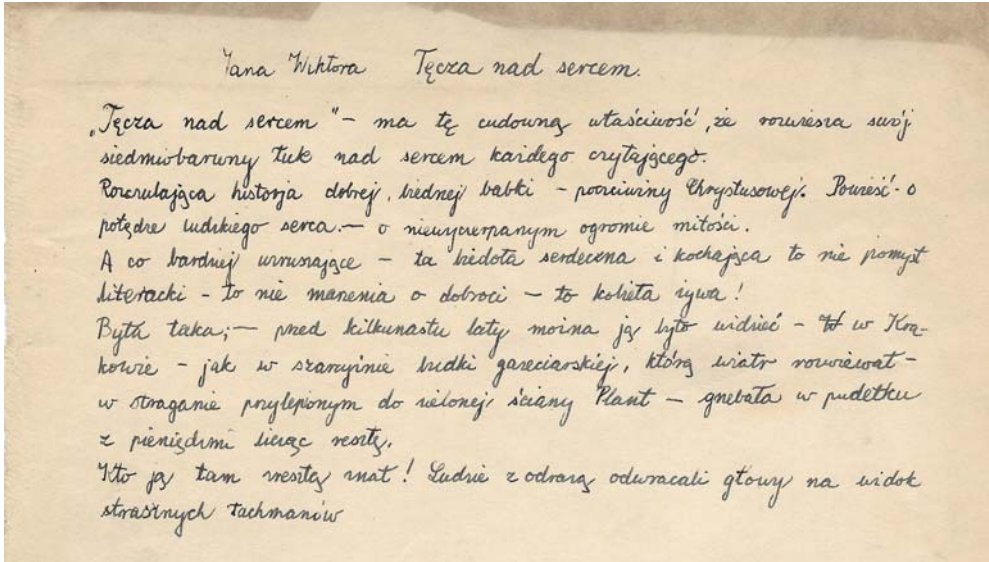 Jana Wiktora Tęcza nad sercem.
„Tęcza nad sercem" – ma tę cudowną właściwość, że rozwiesza swój
siedmiobarwny łuk nad sercem każdego czytającego.
Rozczulająca historja dobrej, biednej babki – poczciwiny Chrystusowej. Powieść o
potędze ludzkiego serca. – o niewyczerpanym ogromie miłości.
A co bardziej wzruszające – ta biedota serdeczna i kochająca to nie pomysł
literacki – to nie marzenia o dobroci – to kobieta żywa!
Była taka; – przed kilkunastu laty można ją było widzieć – w Kra-
kowie – jak w szarzyźnie budki gazeciarskiej, którą wiatr rozwiewał –
w straganie przylepionym do zielonej ściany Plant – gnebała w pudełku
z pieniędzmi licząc resztę.
Kto ją tam zresztą znał! Ludzie z odrazą odwracali głowy na widok
strasznych łachmanów